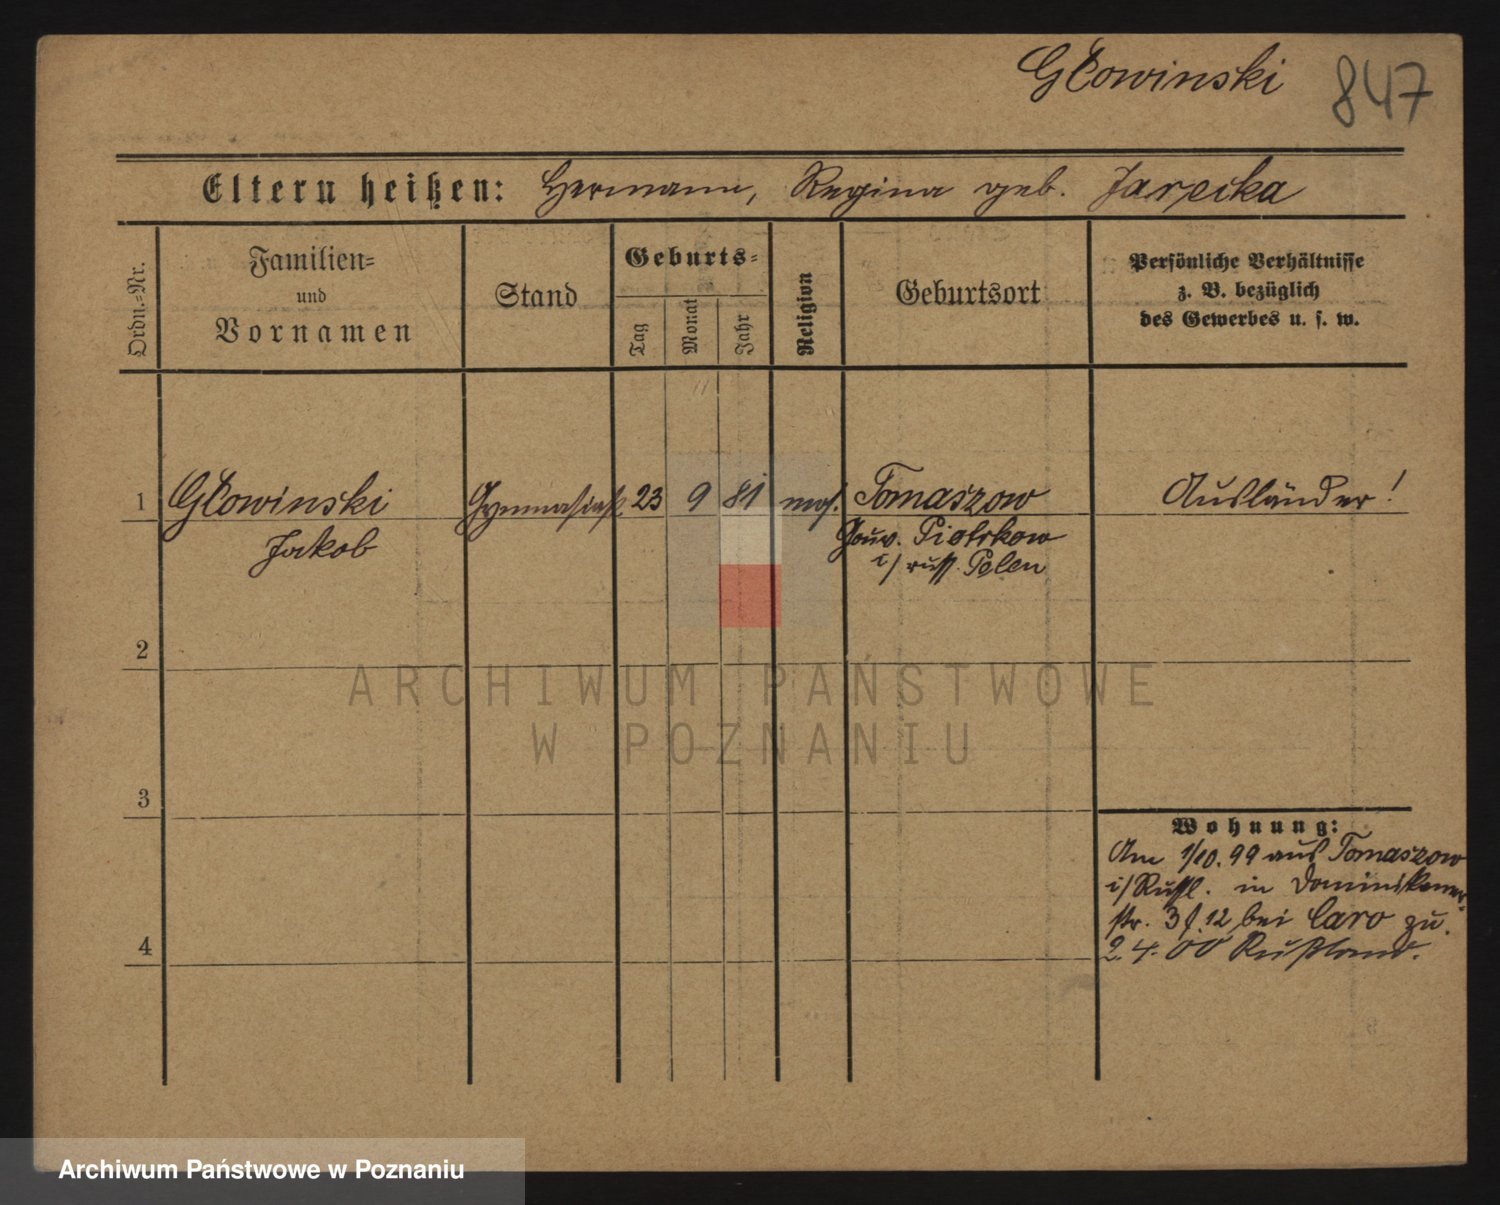 Głowinski 847
Eltern heißen: Hermann, Regina geb. Jarecka
Ordn.=Nr.
Familien=
und
Vornamen
Stand
Geburts=
Tag
Monat
Jahr
Religion
Geburtsort
Persönliche Verhältnisse
z. B. bezüglich
des Gewerbes u. s. w.
1 Głowinski Gymnasiast 23 9 81 mos. Tomaszow Ausländer!
Jakob Gouv. Piotrkow
i/ russ. Polen
2
ARCHIWUM PAŃSTWOWE
W POZNANIU
3
Wohnung:
Am 1/10. 99 aus Tomaszow
i/Russl. in Dominikaner-
str. 3 f. 12 bei Caro zu.
4 2. 4. 00 Rußland.
Archiwum Państwowe w Poznaniu